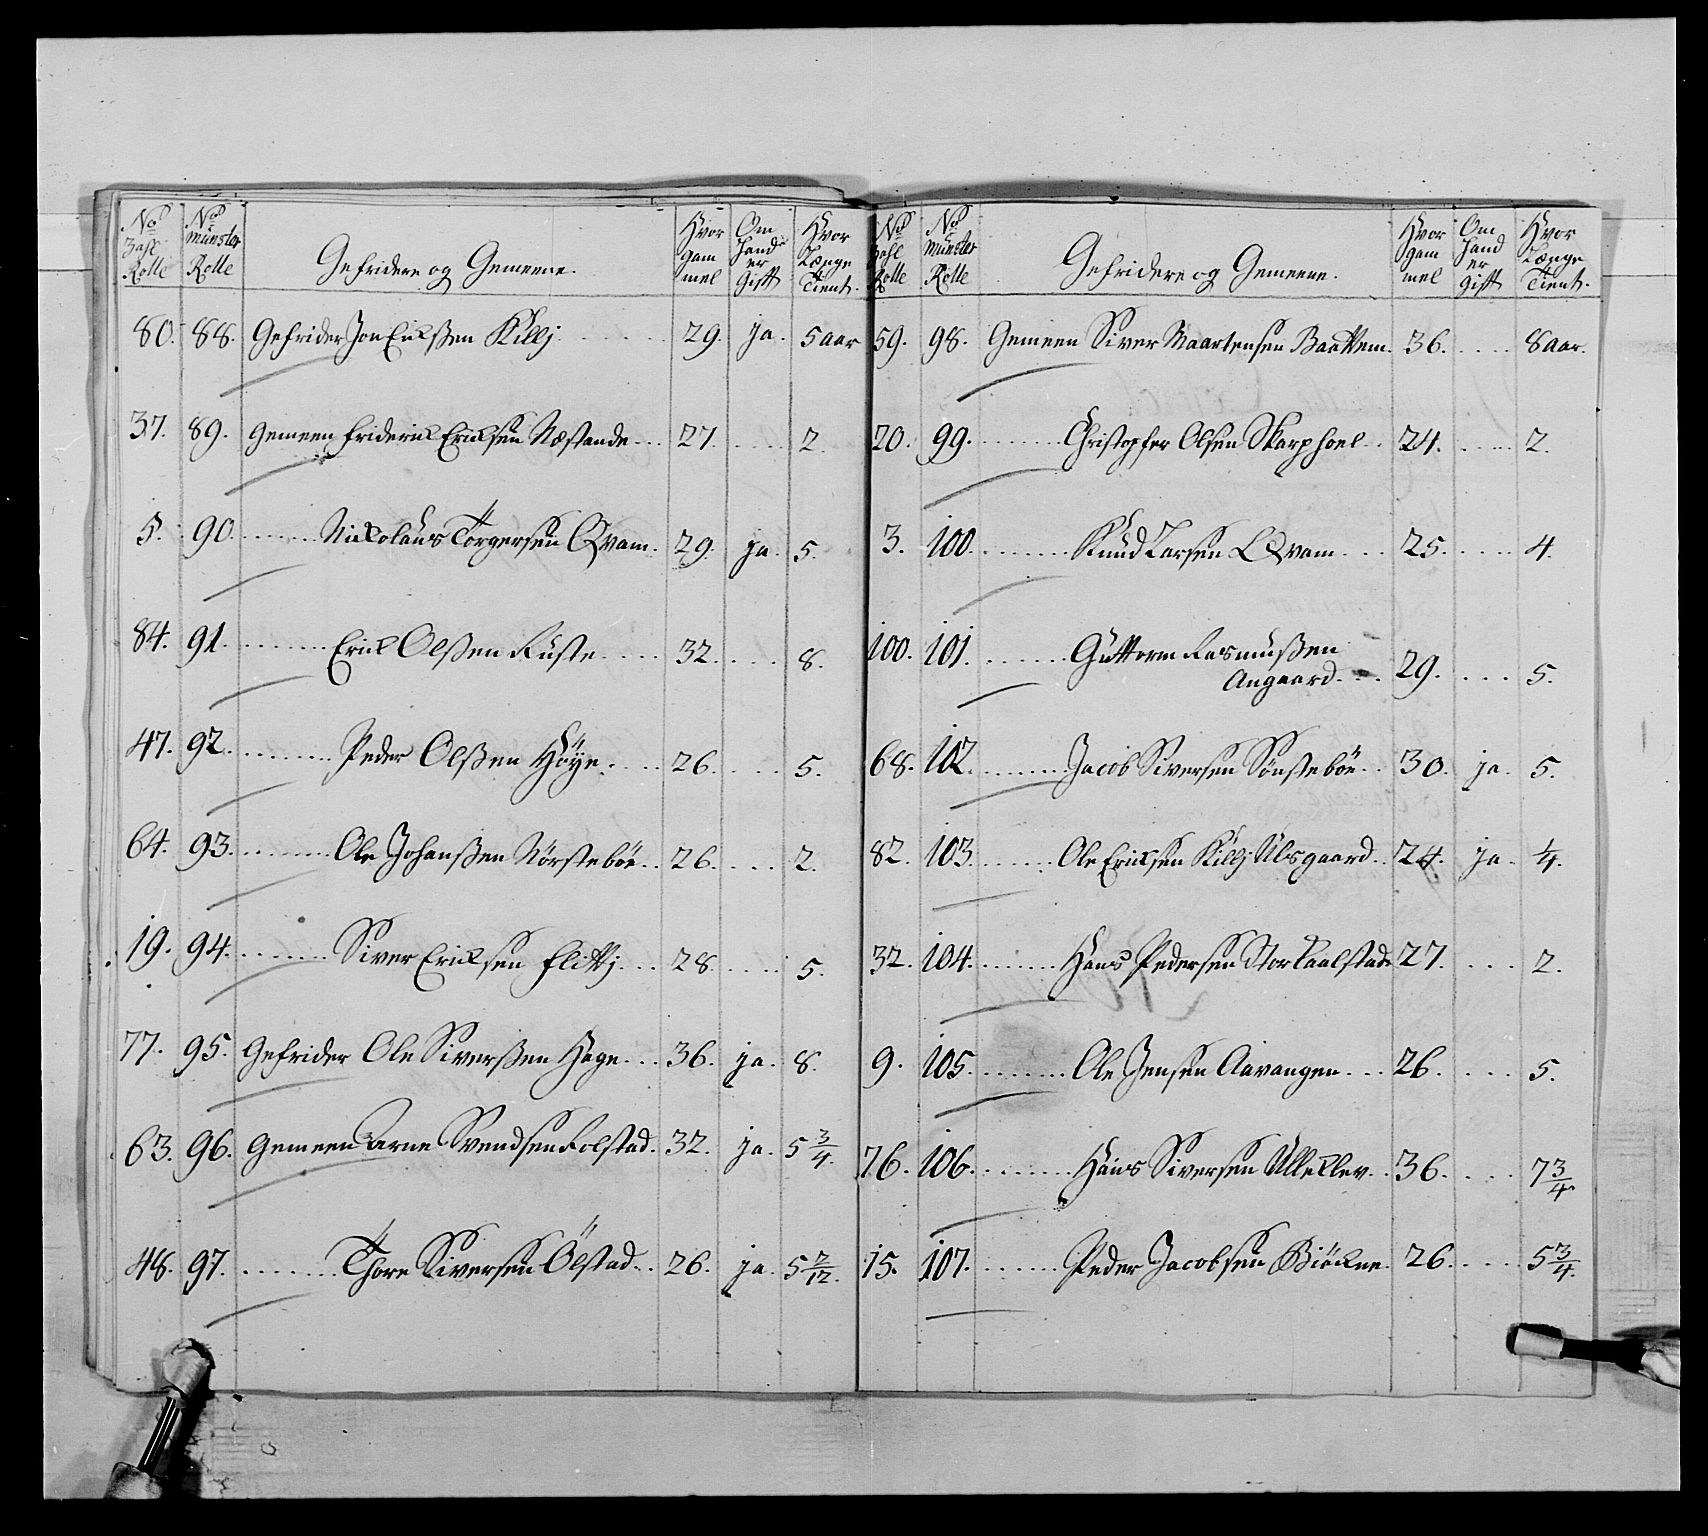 No Zahl Rolle | No Münster Rolle | Gefridere og Gemeene. | Hvor gam mel | Om hand er Gift | Hvor Længe Tient.
80. 88. Gefrider Jon Erichßen Killj 29. ja. 5 aar
37. 89. Gemeen Friderich Erichsen Næstande 27. 2.
5. 90. Nickolaus Torgersen Qvam. 29. ja. 5.
84. 91. Erich Olßen Ruste 32. 8.
47. 92. Peder Olßen Høye. 26. 5.
64. 93. Ole Johanßen Nørstebøe 26. 2.
19. 94. Siver Erichsen 28. 5.
77. 95. Gefrider Ole Siverßen Hage 36. ja. 8.
63. 96. Gemeen Arne Svendsen Folstad. 32. ja. 5 3/4.
48. 97. Thore Siversen Ølstad. 26. ja. 5 2/12.
No Zahl Rolle | No Münster Rolle | Gefridere og Gemeene. | Hvor gam mel | Om hand er gift | Hvor Længe Tient.
59. 98. Gemeen Siver Maartensen 36. 8 aar.
20. 99. Christopfer Olsen Skarphoel 24. 2.
3. 100. Knud Larsen Qvam 25. 4.
100. 101. Guttorm Rasmußen
Angaard. 29. 5.
68. 102. Jacob Siversen Sønstebøe 30. ja. 5.
82. 103. Ole Erichsen Killj Ulsgaard 24. ja. 1/4.
32. 104. Hans Pedersen Stor Kaalstad 27. 2.
9. 105. Ole Jensen Aavangen 26. 5.
76. 106. Hans Siversen Ulleklev 36. 7 3/4
15. 107. Peder Jacobsen Biöckne. 26. 5 3/4.